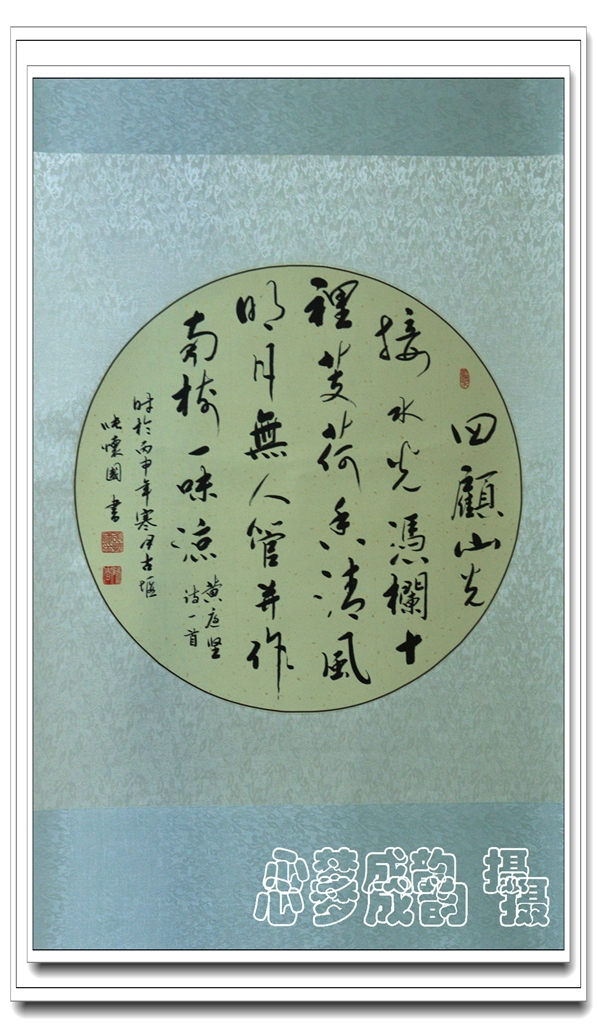 四顧山光
接水光憑欄十
裡芰荷香清風
明月無人管并作
南樓一味凉
黄庭坚
诗一首
时於丙申年寒月古堰
懷國書
心梦成韵 摄